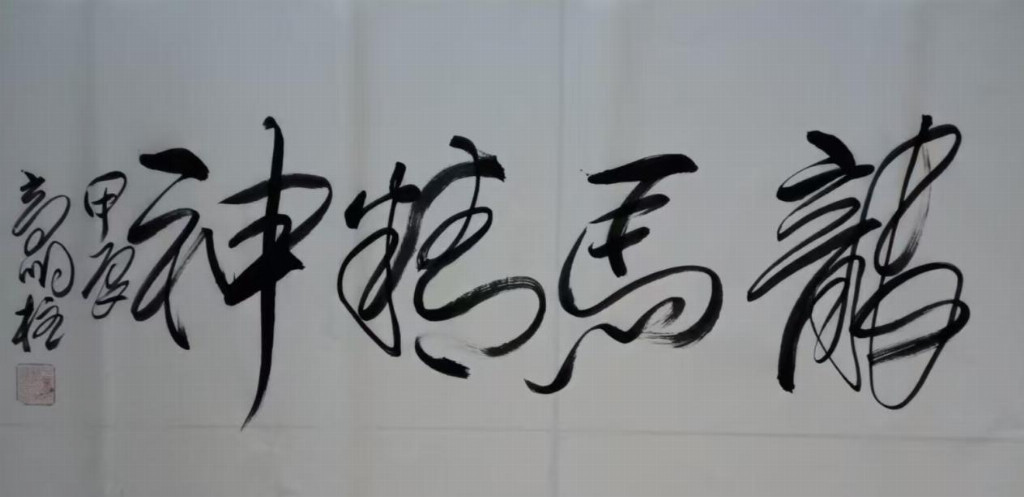 龍馬精神
甲午
高明柱